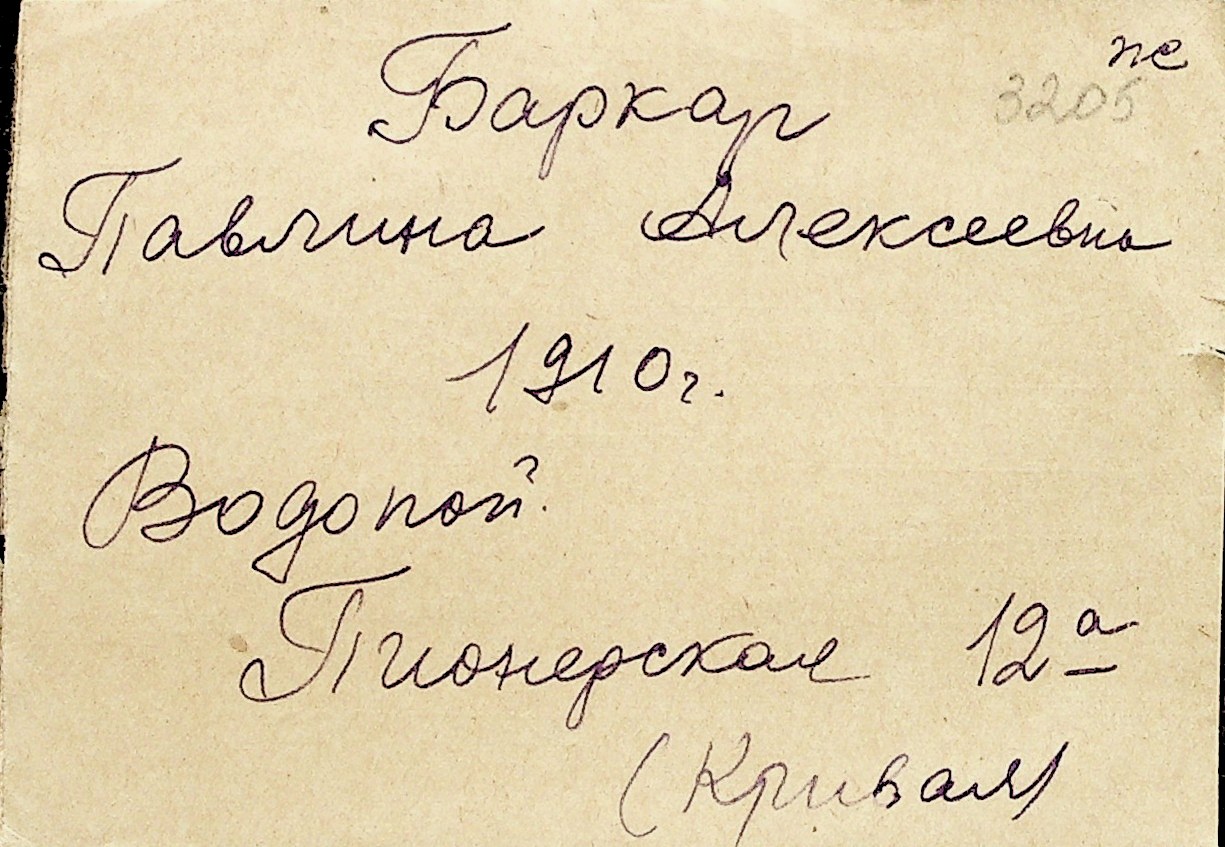 пе
3205
Баркар
Павлина Алексеевна
1910г.
Водопой.
Пионерская 12а
(Кривая)